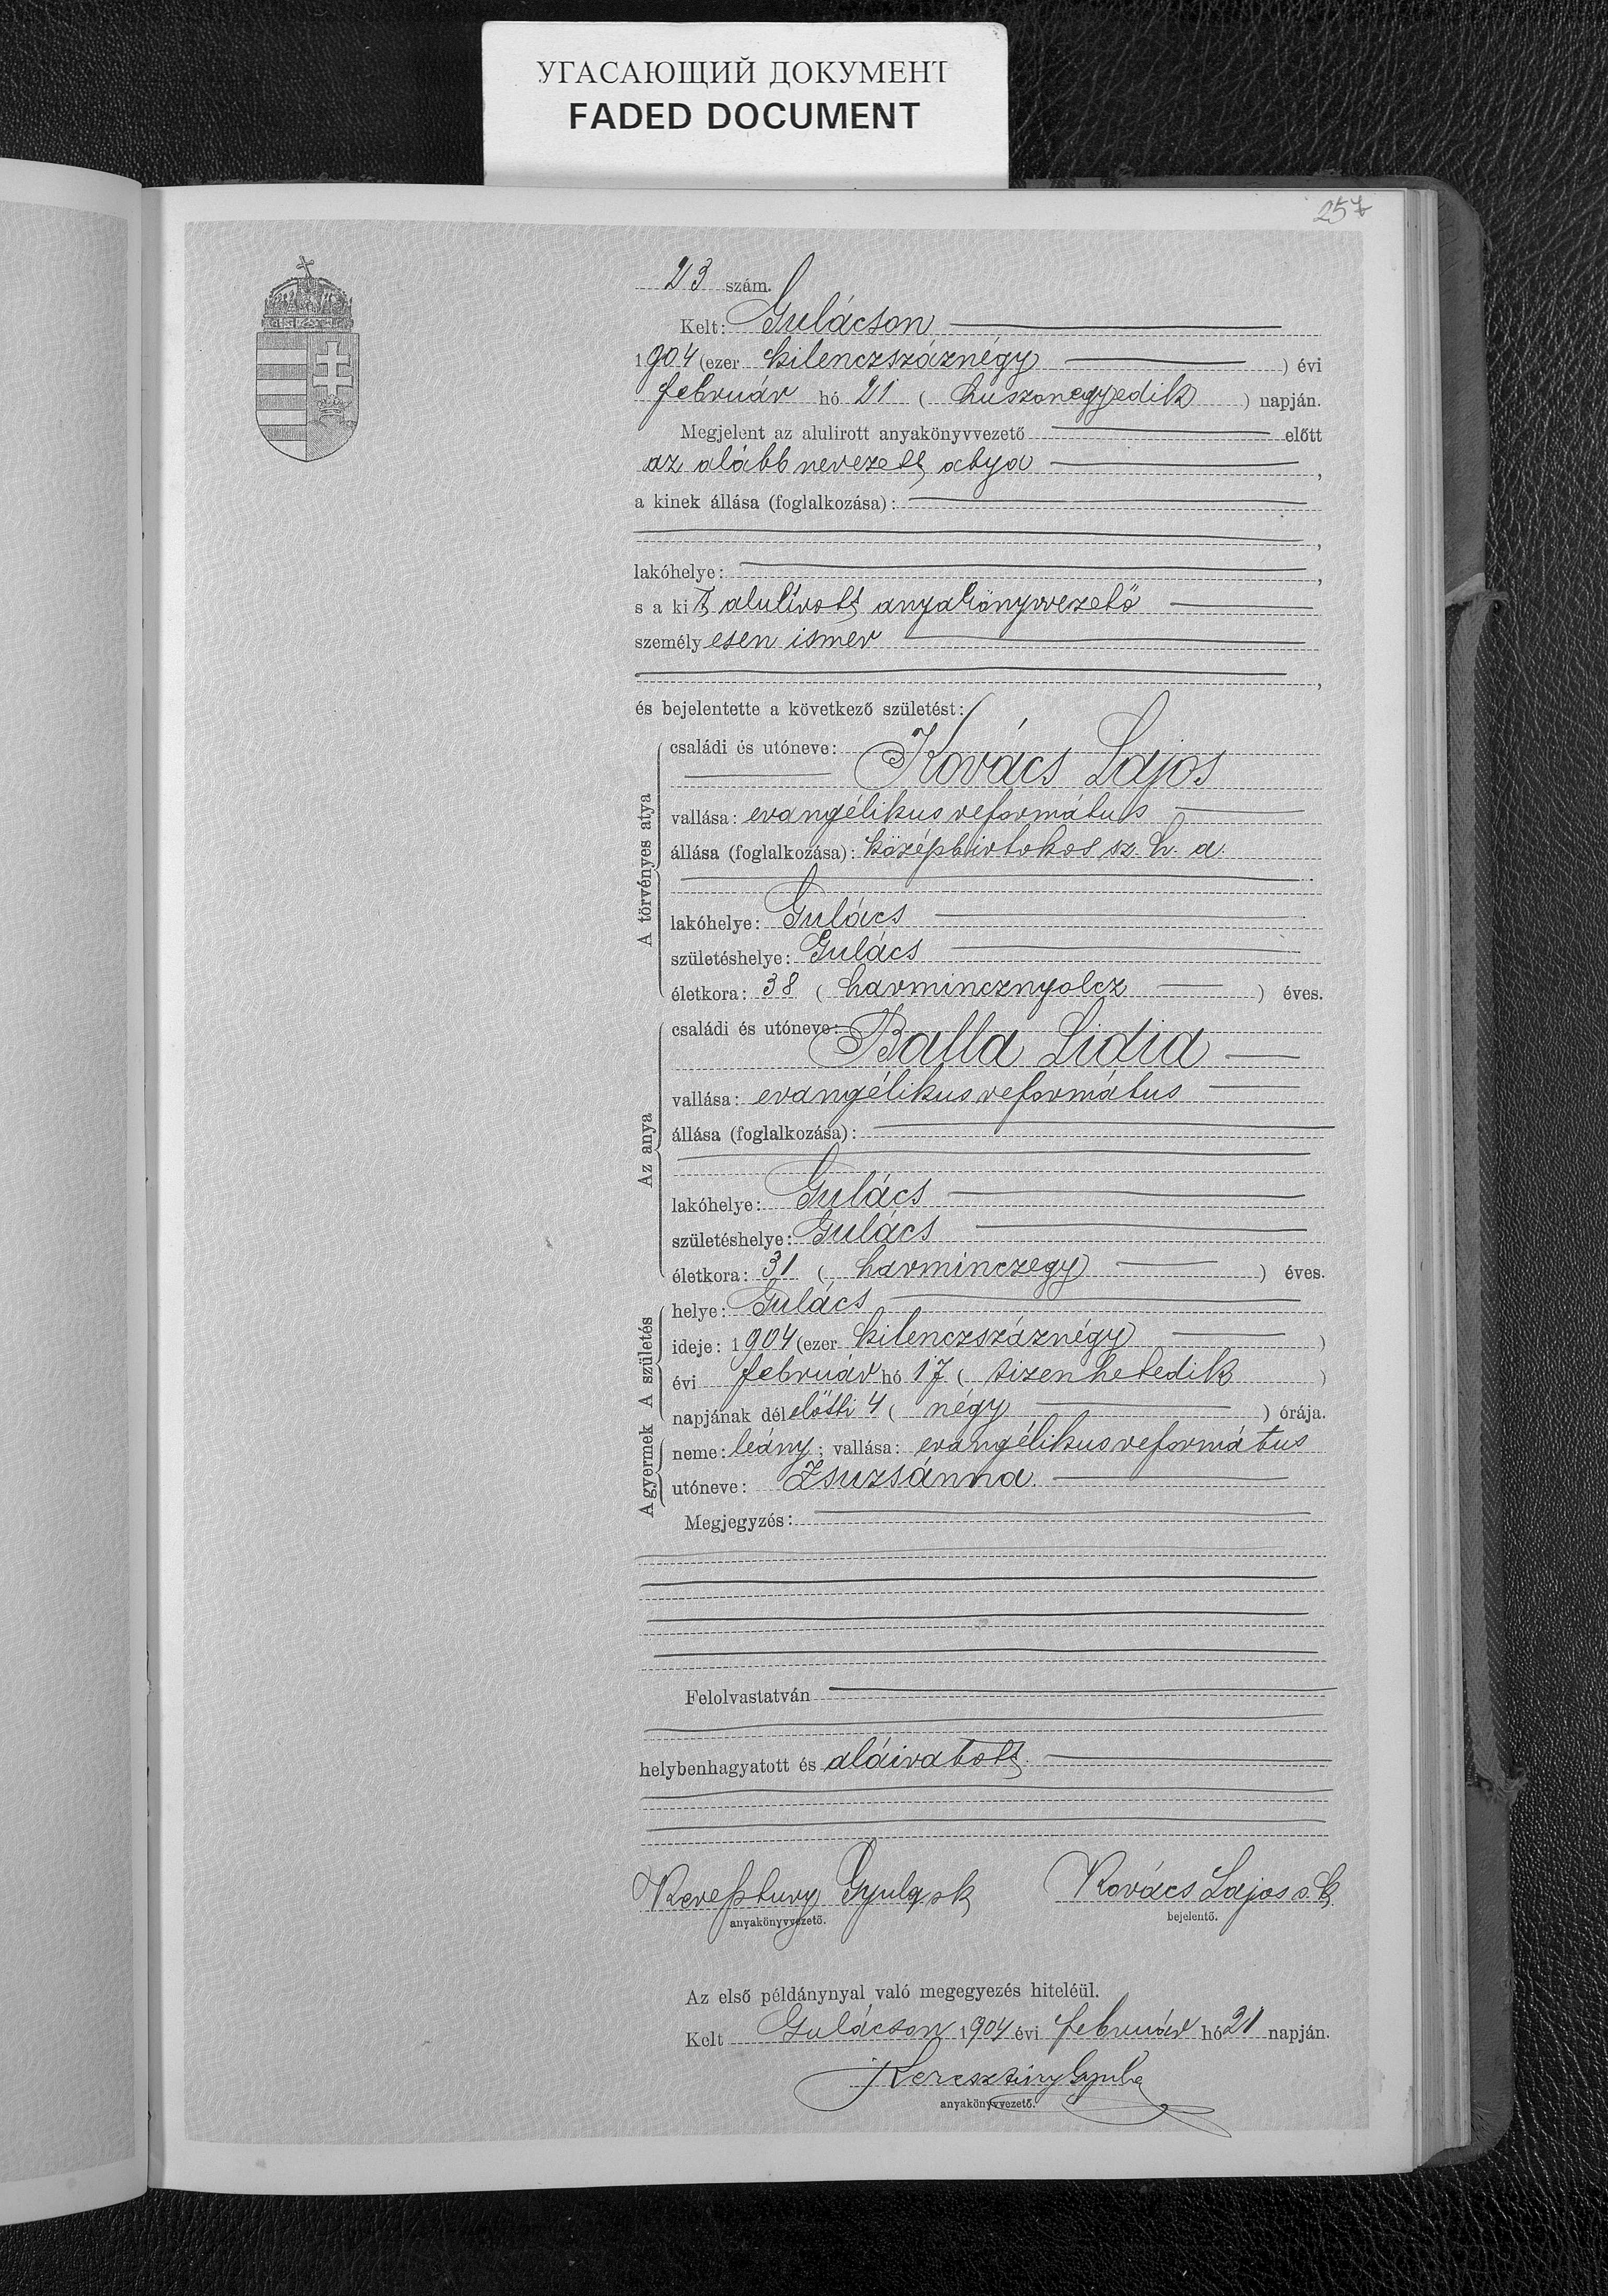 УГАСАЮЩИЙ ДОКУМЕНТ
FADED DOCUMENT
257
23 szám.
Kelt: Gulácson
1904 (ezer kilenczszáznégy ) évi
február hó 21 ( huszonegyedik ) napján.
Megjelent az alulirott anyakönyvvezető előtt
az alább nevezett atya ,
a kinek állása (foglalkozása):
,
lakóhelye: ,
s a kit alulírott anyakönyvvezető
személyesen ismer
,
és bejelentette a következő születést:
A törvényes atya
családi és utóneve: Kovács Lajos
vallása: evangélikus református
állása (foglalkozása): középbirtokos sz. h. a.
lakóhelye: Gulács
születéshelye: Gulács
életkora: 38 ( harmincznyolcz ) éves.
Az anya
családi és utóneve: Balla Lidia
vallása: evangélikus református
állása (foglalkozása):
lakóhelye: Gulács
születéshelye: Gulács
életkora: 31 ( harminczegy ) éves.
A születés
helye: Gulács
ideje: 1904 (ezer kilenczszáznégy )
évi február hó 17 ( tizenhetedik )
napjának délelőtti 4 ( négy ) órája.
A gyermek
neme: leány; vallása: evangélikus református
utóneve: Zsuzsánna.
Megjegyzés:
Felolvastatván
helybenhagyatott és aláiratott.
Keresztury Gyula sk Kovács Lajos s. k.
anyakönyvvezető. bejelentő.
Az első példánynyal való megegyezés hiteléül.
Kelt Gulácson 1904 évi február hó 21 napján.
Keresztúry Gyula
anyakönyvvezető.